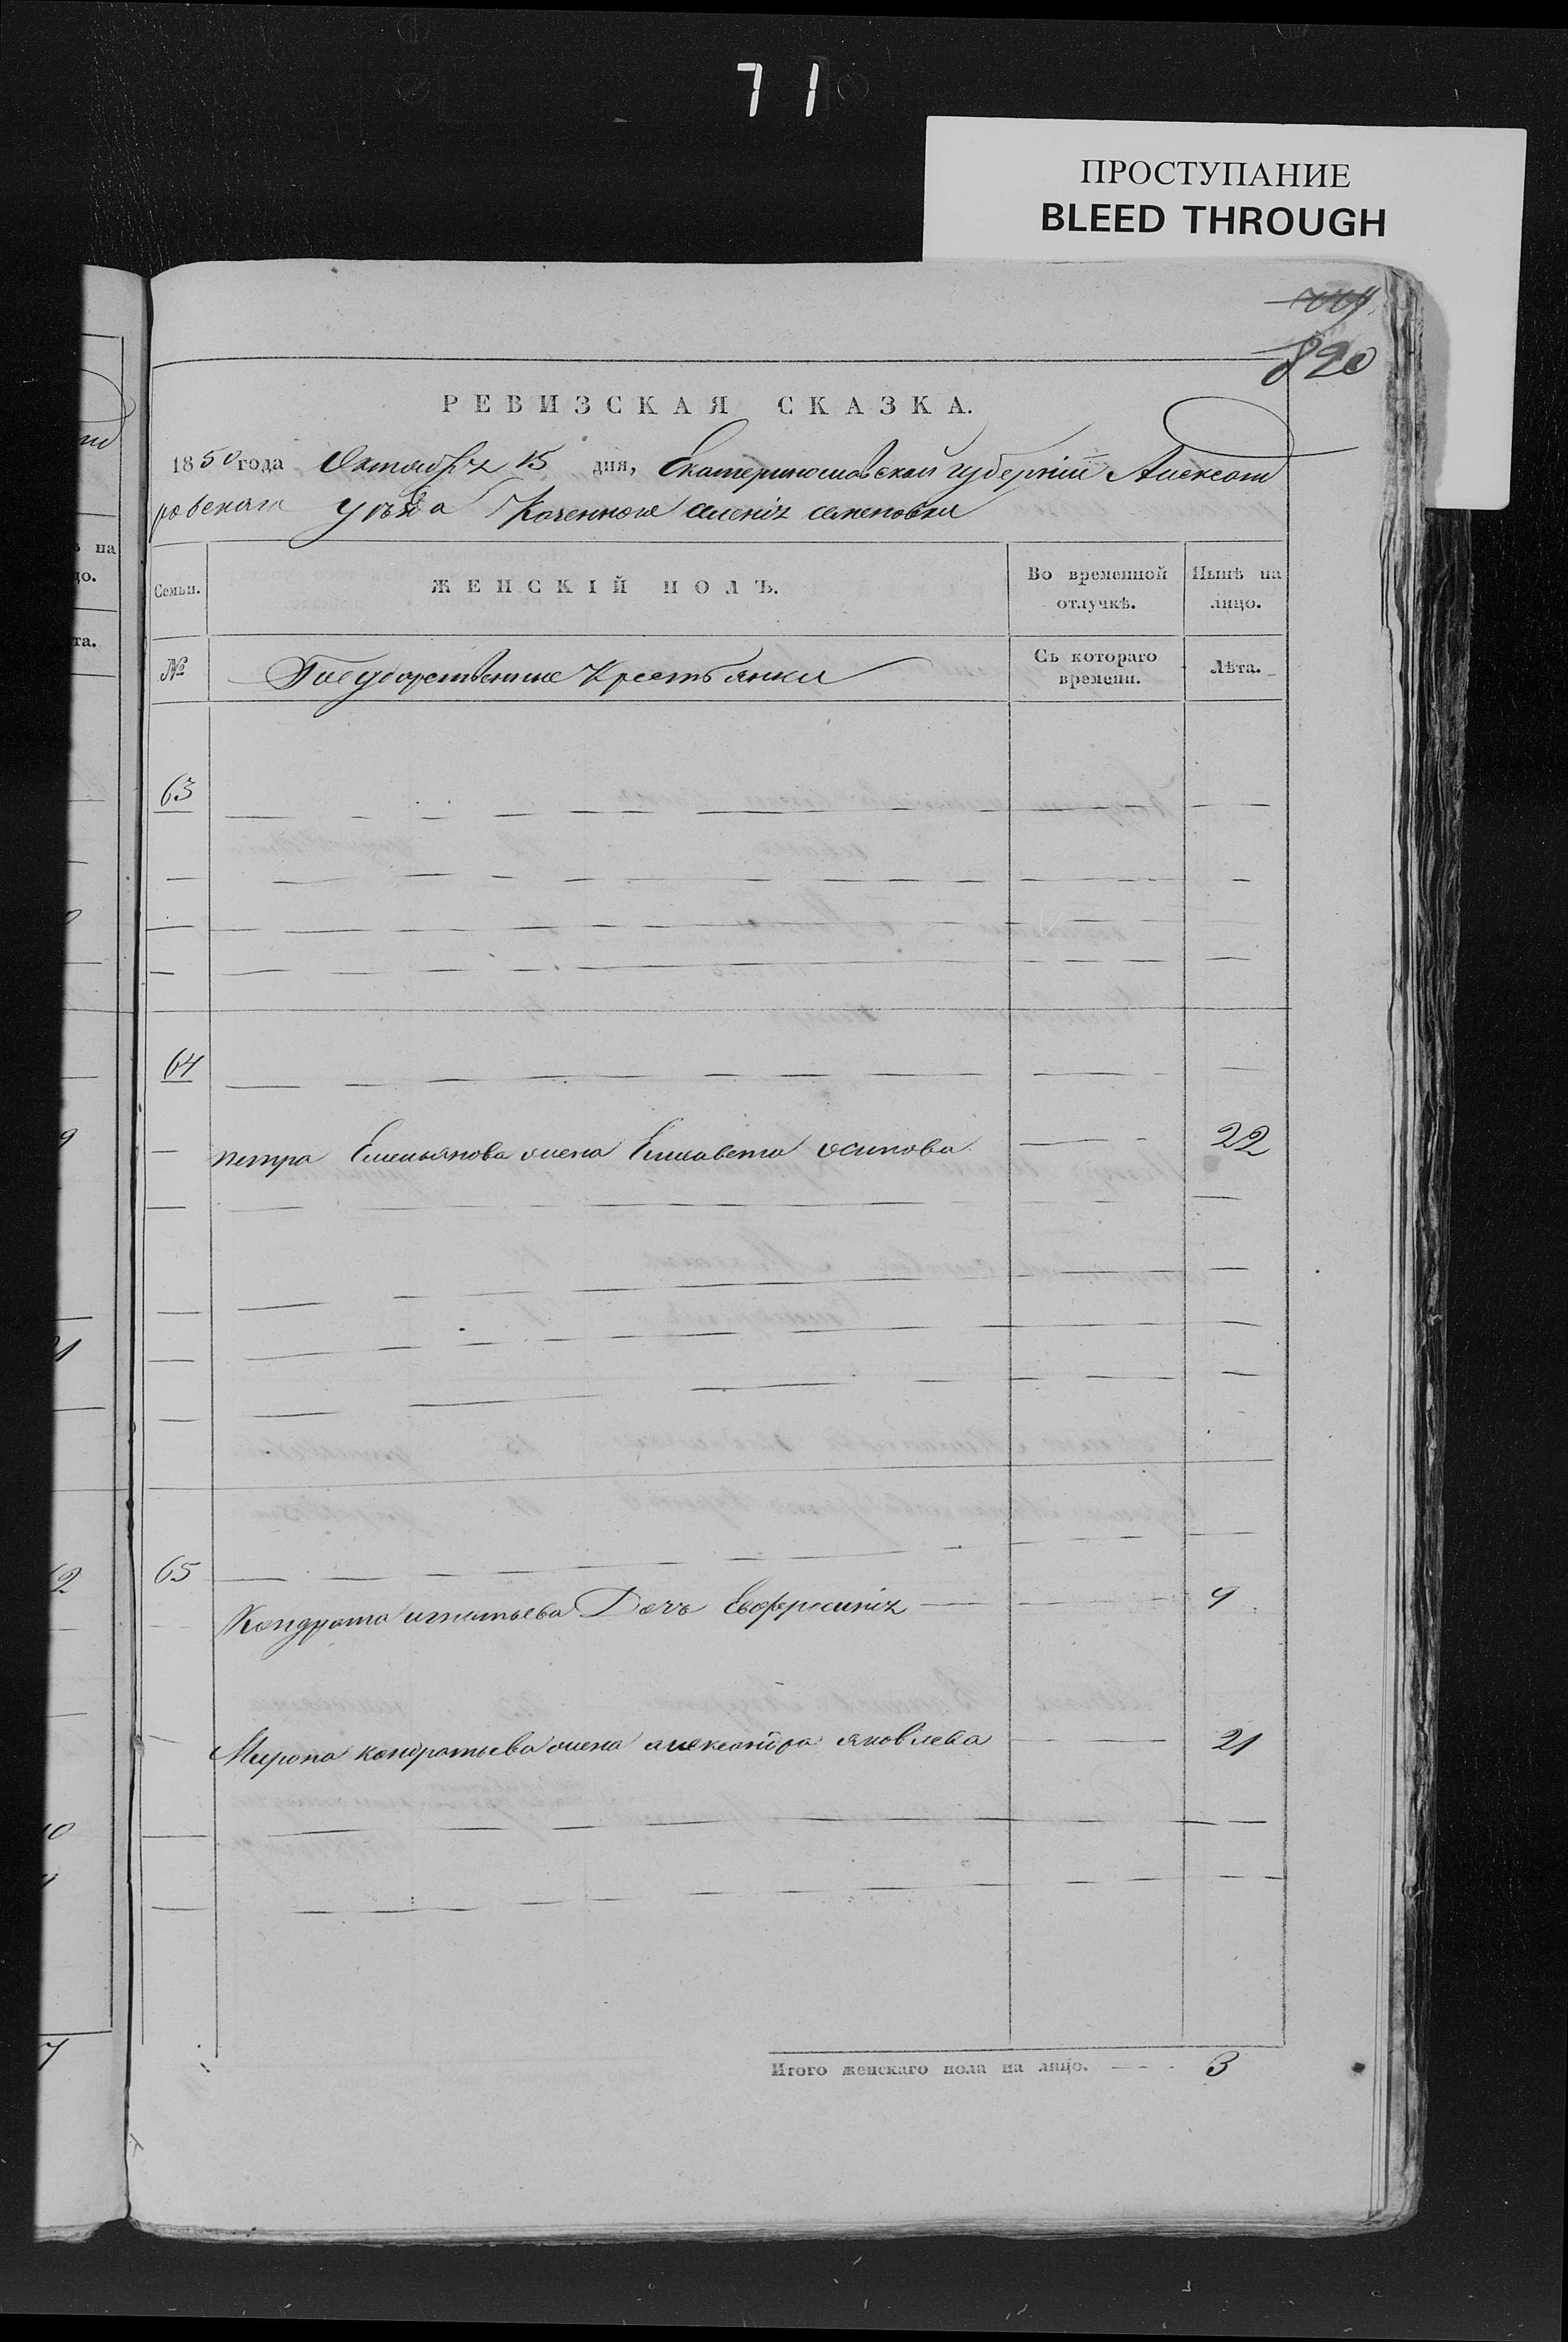 71
ПРОСТУПАНИЕ
BLEED THROUGH
820
РЕВИЗСКАЯ СКАЗКА.
1850 года Октября 15 дня, Екатеринославской губерніи Александ
ровскаго уѣзда Казенного селенія семеновки
Семьи. ЖЕНСКІЙ ПОЛЪ. Во временной отлучкѣ. Нынѣ на лицо.
№ Государственные Крестьянки Съ котораго времени. Лѣта.
63
64
петра Емельянова жена Елисавета осипова 22
65
Кондрата игнатьева Дочь Евфросинія 9
Мирона кондратьева жена александра яковлева 21
Итого женскаго пола на лицо. 3